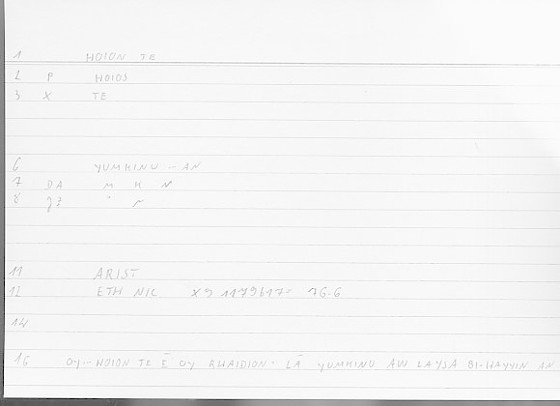 1 HOION TE
2 P HOIOS
3 X TE
6 YUMKINU - AN
7 DA M K N
8
11 ARIST
12 ETH NIC X 9 1179b17= 76.6
14
16 OY-HOION TE Ē OY RHAIDION· LĀ YUMKINU AW LAYSA BI-HAYYIN AN